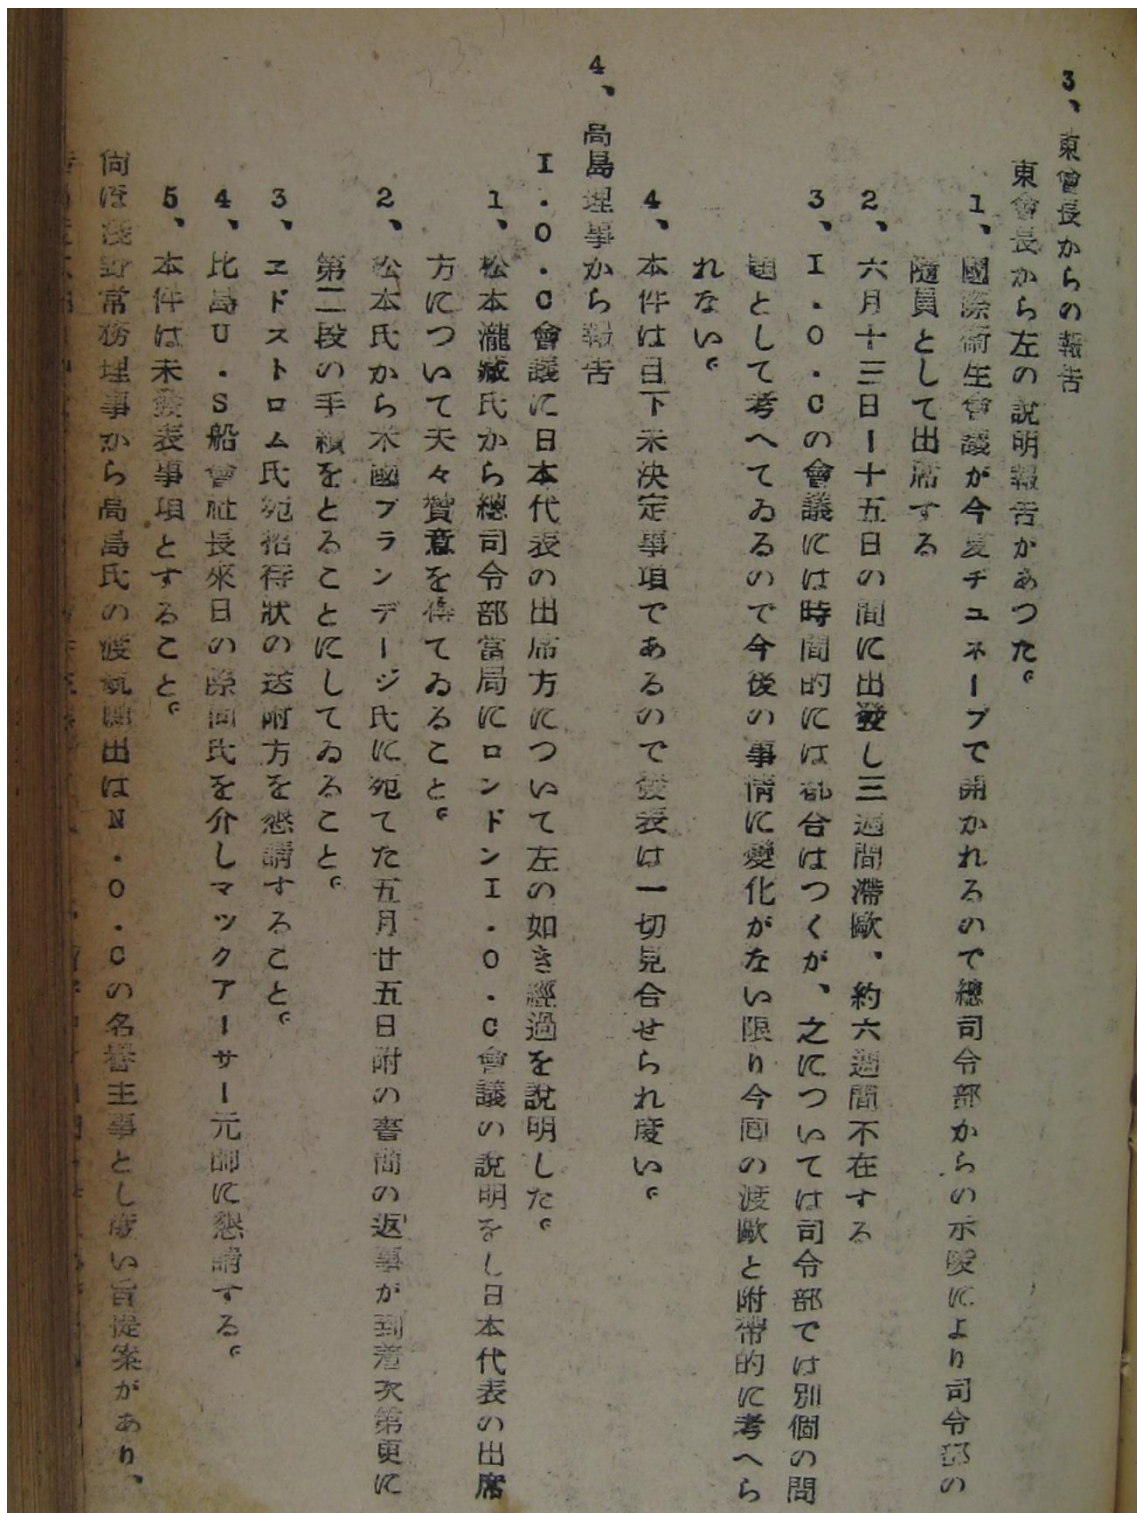 3、東會長からの報告
東會長から左の説明報告があつた。
1、國際衞生會議が今夏チユネーブで開かれるので總司令部からの示唆により司令部の
隨員として出席する
2、六月十三日ー十五日の間に出發し三週間滯歐、約六週間不在する
3、I・O・Cの會議には時間的には都合はつくが、之については司令部では別個の問
題として考へてゐるので今後の事情に變化がない限り今回の渡歐と附帶的に考へら
れない。
4、本件は目下未決定事項であるので發表は一切見合せられ度い。
4、高島理事から報告
I・O・C會議に日本代表の出席方について左の如き經過を説明した。
1、松本瀧藏氏から總司令部當局にロンドンI・O・C會議の説明をし日本代表の出席
方について夫々贊意を得てゐること。
2、松本氏から米國ブランデージ氏に宛てた五月廿五日附の書簡の返事が到着次第更に
第二段の手續をとることにしてゐること。
3、エドストロム氏宛招待狀の送附方を懇請すること。
4、比島U・S船會社長來日の際同氏を介しマックアーサー元帥に懇請する。
5、本件は未發表事項とすること。
尙ほ淺野常務理事から高島氏の渡航願出はN・O・Cの名譽主事とし度い旨提案があり、